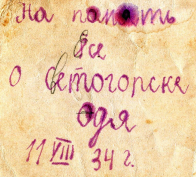 На память
Все
о Светогорске
Одя
11 VIII 34 г.